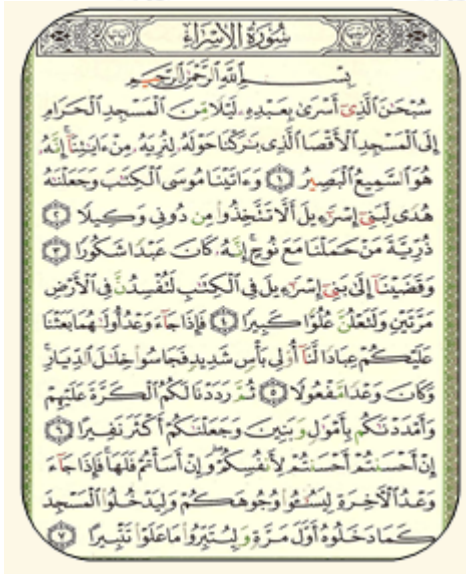 سُورَةُ الإِسْرَاءِ
بِسْمِ اللَّهِ الرَّحْمَٰنِ الرَّحِيمِ
سُبْحَٰنَ الَّذِىٓ أَسْرَىٰ بِعَبْدِهِۦ لَيْلًا مِّنَ الْمَسْجِدِ الْحَرَامِ
إِلَى الْمَسْجِدِ الْأَقْصَا الَّذِى بَٰرَكْنَا حَوْلَهُۥ لِنُرِيَهُۥ مِنْ ءَايَٰتِنَآ ۚ إِنَّهُۥ
هُوَ السَّمِيعُ الْبَصِيرُ ١ وَءَاتَيْنَا مُوسَى الْكِتَٰبَ وَجَعَلْنَٰهُ
هُدًى لِّبَنِىٓ إِسْرَٰٓءِيلَ أَلَّا تَتَّخِذُوا۟ مِن دُونِى وَكِيلًا ٢
ذُرِّيَّةَ مَنْ حَمَلْنَا مَعَ نُوحٍ ۚ إِنَّهُۥ كَانَ عَبْدًا شَكُورًا ٣
وَقَضَيْنَآ إِلَىٰ بَنِىٓ إِسْرَٰٓءِيلَ فِى الْكِتَٰبِ لَتُفْسِدُنَّ فِى الْأَرْضِ
مَرَّتَيْنِ وَلَتَعْلُنَّ عُلُوًّا كَبِيرًا ٤ فَإِذَا جَآءَ وَعْدُ أُولَىٰهُمَا بَعَثْنَا
عَلَيْكُمْ عِبَادًا لَّنَآ أُو۟لِى بَأْسٍ شَدِيدٍ فَجَاسُوا۟ خِلَٰلَ الدِّيَارِ ۚ
وَكَانَ وَعْدًا مَّفْعُولًا ٥ ثُمَّ رَدَدْنَا لَكُمُ الْكَرَّةَ عَلَيْهِمْ
وَأَمْدَدْنَٰكُم بِأَمْوَٰلٍ وَبَنِينَ وَجَعَلْنَٰكُمْ أَكْثَرَ نَفِيرًا ٦
إِنْ أَحْسَنتُمْ أَحْسَنتُمْ لِأَنفُسِكُمْ ۖ وَإِنْ أَسَأْتُمْ فَلَهَا ۚ فَإِذَا جَآءَ
وَعْدُ الْءَاخِرَةِ لِيَسُۥٓـُٔوا۟ وُجُوهَكُمْ وَلِيَدْخُلُوا۟ الْمَسْجِدَ
كَمَا دَخَلُوهُ أَوَّلَ مَرَّةٍ وَلِيُتَبِّرُوا۟ مَا عَلَوْا۟ تَتْبِيرًا ٧